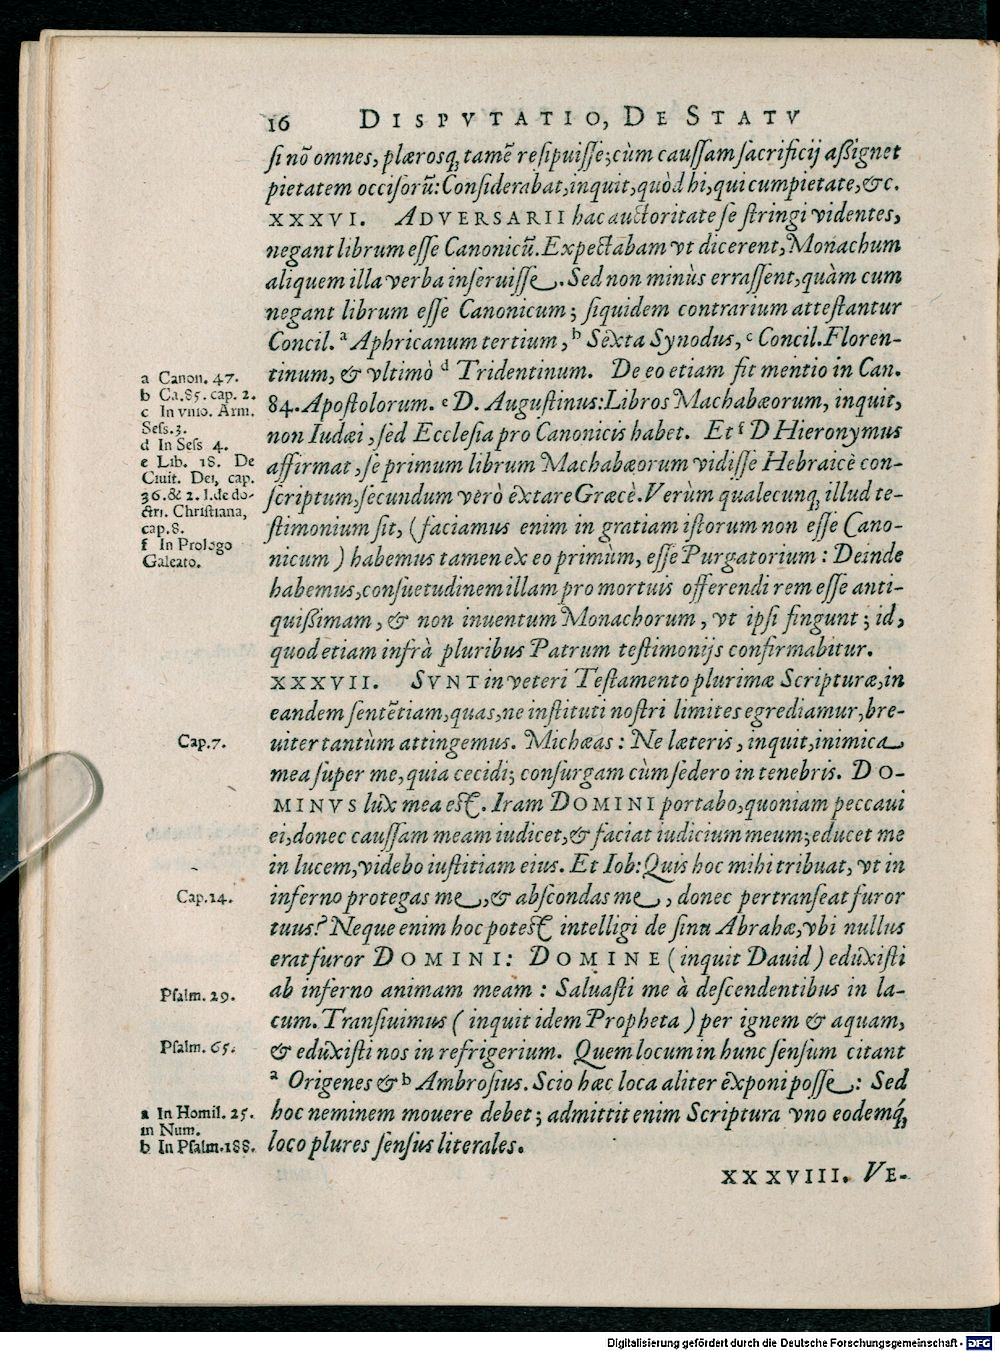 16 DISPVTATIO, DE STATV
si nõ omnes, plærosq, tamẽ resipuisse; cùm caussam sacrificij aßignet
pietatem occisorũ: Considerabat, inquit, quòd hi, qui cum pietate, &c.
XXXVI. ADVERSARII hac auctoritate se stringi videntes,
negant librum esse Canonicũ. Expectabam vt dicerent, Monachum
aliquem illa verba inseruisse. Sed non minùs errassent, quàm cum
negant librum esse Canonicum; siquidem contrarium attestantur
Concil. a Aphricanum tertium, b Sexta Synodus, c Concil. Floren-
tinum, & vltimò d Tridentinum. De eo etiam fit mentio in Can.
84. Apostolorum. e D. Augustinus: Libros Machabæorum, inquit,
non Iudæi, sed Ecclesia pro Canonicis habet. Et f D Hieronymus
affirmat, se primum librum Machabæorum vidisse Hebraicè con-
scriptum, secundum verò extare Græcè. Verùm qualecunq, illud te-
stimonium sit, (faciamus enim in gratiam istorum non esse Cano-
nicum) habemus tamen ex eo primùm, esse Purgatorium: Deinde
habemus, consuetudinem illam pro mortuis offerendi rem esse anti-
quißimam, & non inuentum Monachorum, vt ipsi fingunt; id,
quod etiam infrà pluribus Patrum testimonijs confirmabitur.
a Canon. 47.
b Ca.85. cap. 2.
c In vnio. Arm.
Sess.3.
d In Sess 4.
e Lib. 18. De
Ciuit. Dei, cap.
36.& 2. l.de do-
ctri. Christiana,
cap.8.
f In Prologo
Galeato.
XXXVII. SVNT in veteri Testamento plurimæ Scripturæ, in
eandem sentẽtiam, quas, ne instituti nostri limites egrediamur, bre-
uiter tantùm attingemus. Michæas: Ne læteris, inquit, inimica
Cap.7.
mea super me, quia cecidi; consurgam cùm sedero in tenebris. DO-
MINVS lux mea est. Iram DOMINI portabo, quoniam peccaui
ei, donec caussam meam iudicet, & faciat iudicium meum; educet me
in lucem, videbo iustitiam eius. Et Iob: Quis hoc mihi tribuat, vt in
inferno protegas me, & abscondas me, donec pertranseat furor
Cap.14.
tuus? Neque enim hoc potest intelligi de sinu Abrahæ, vbi nullus
erat furor DOMINI: DOMINE (inquit Dauid) eduxisti
ab inferno animam meam: Saluasti me à descendentibus in la-
Psalm. 29.
cum. Transiuimus (inquit idem Propheta) per ignem & aquam,
& eduxisti nos in refrigerium. Quem locum in hunc sensum citant
Psalm. 65.
a Origenes & b Ambrosius. Scio hæc loca aliter exponi posse: Sed
hoc neminem mouere debet; admittit enim Scriptura vno eodemq́,
loco plures sensus literales.
a In Homil. 25.
in Num.
b In Psalm.188.
XXXVIII. VE-
Digitalisierung gefördert durch die Deutsche Forschungsgemeinschaft - DFG